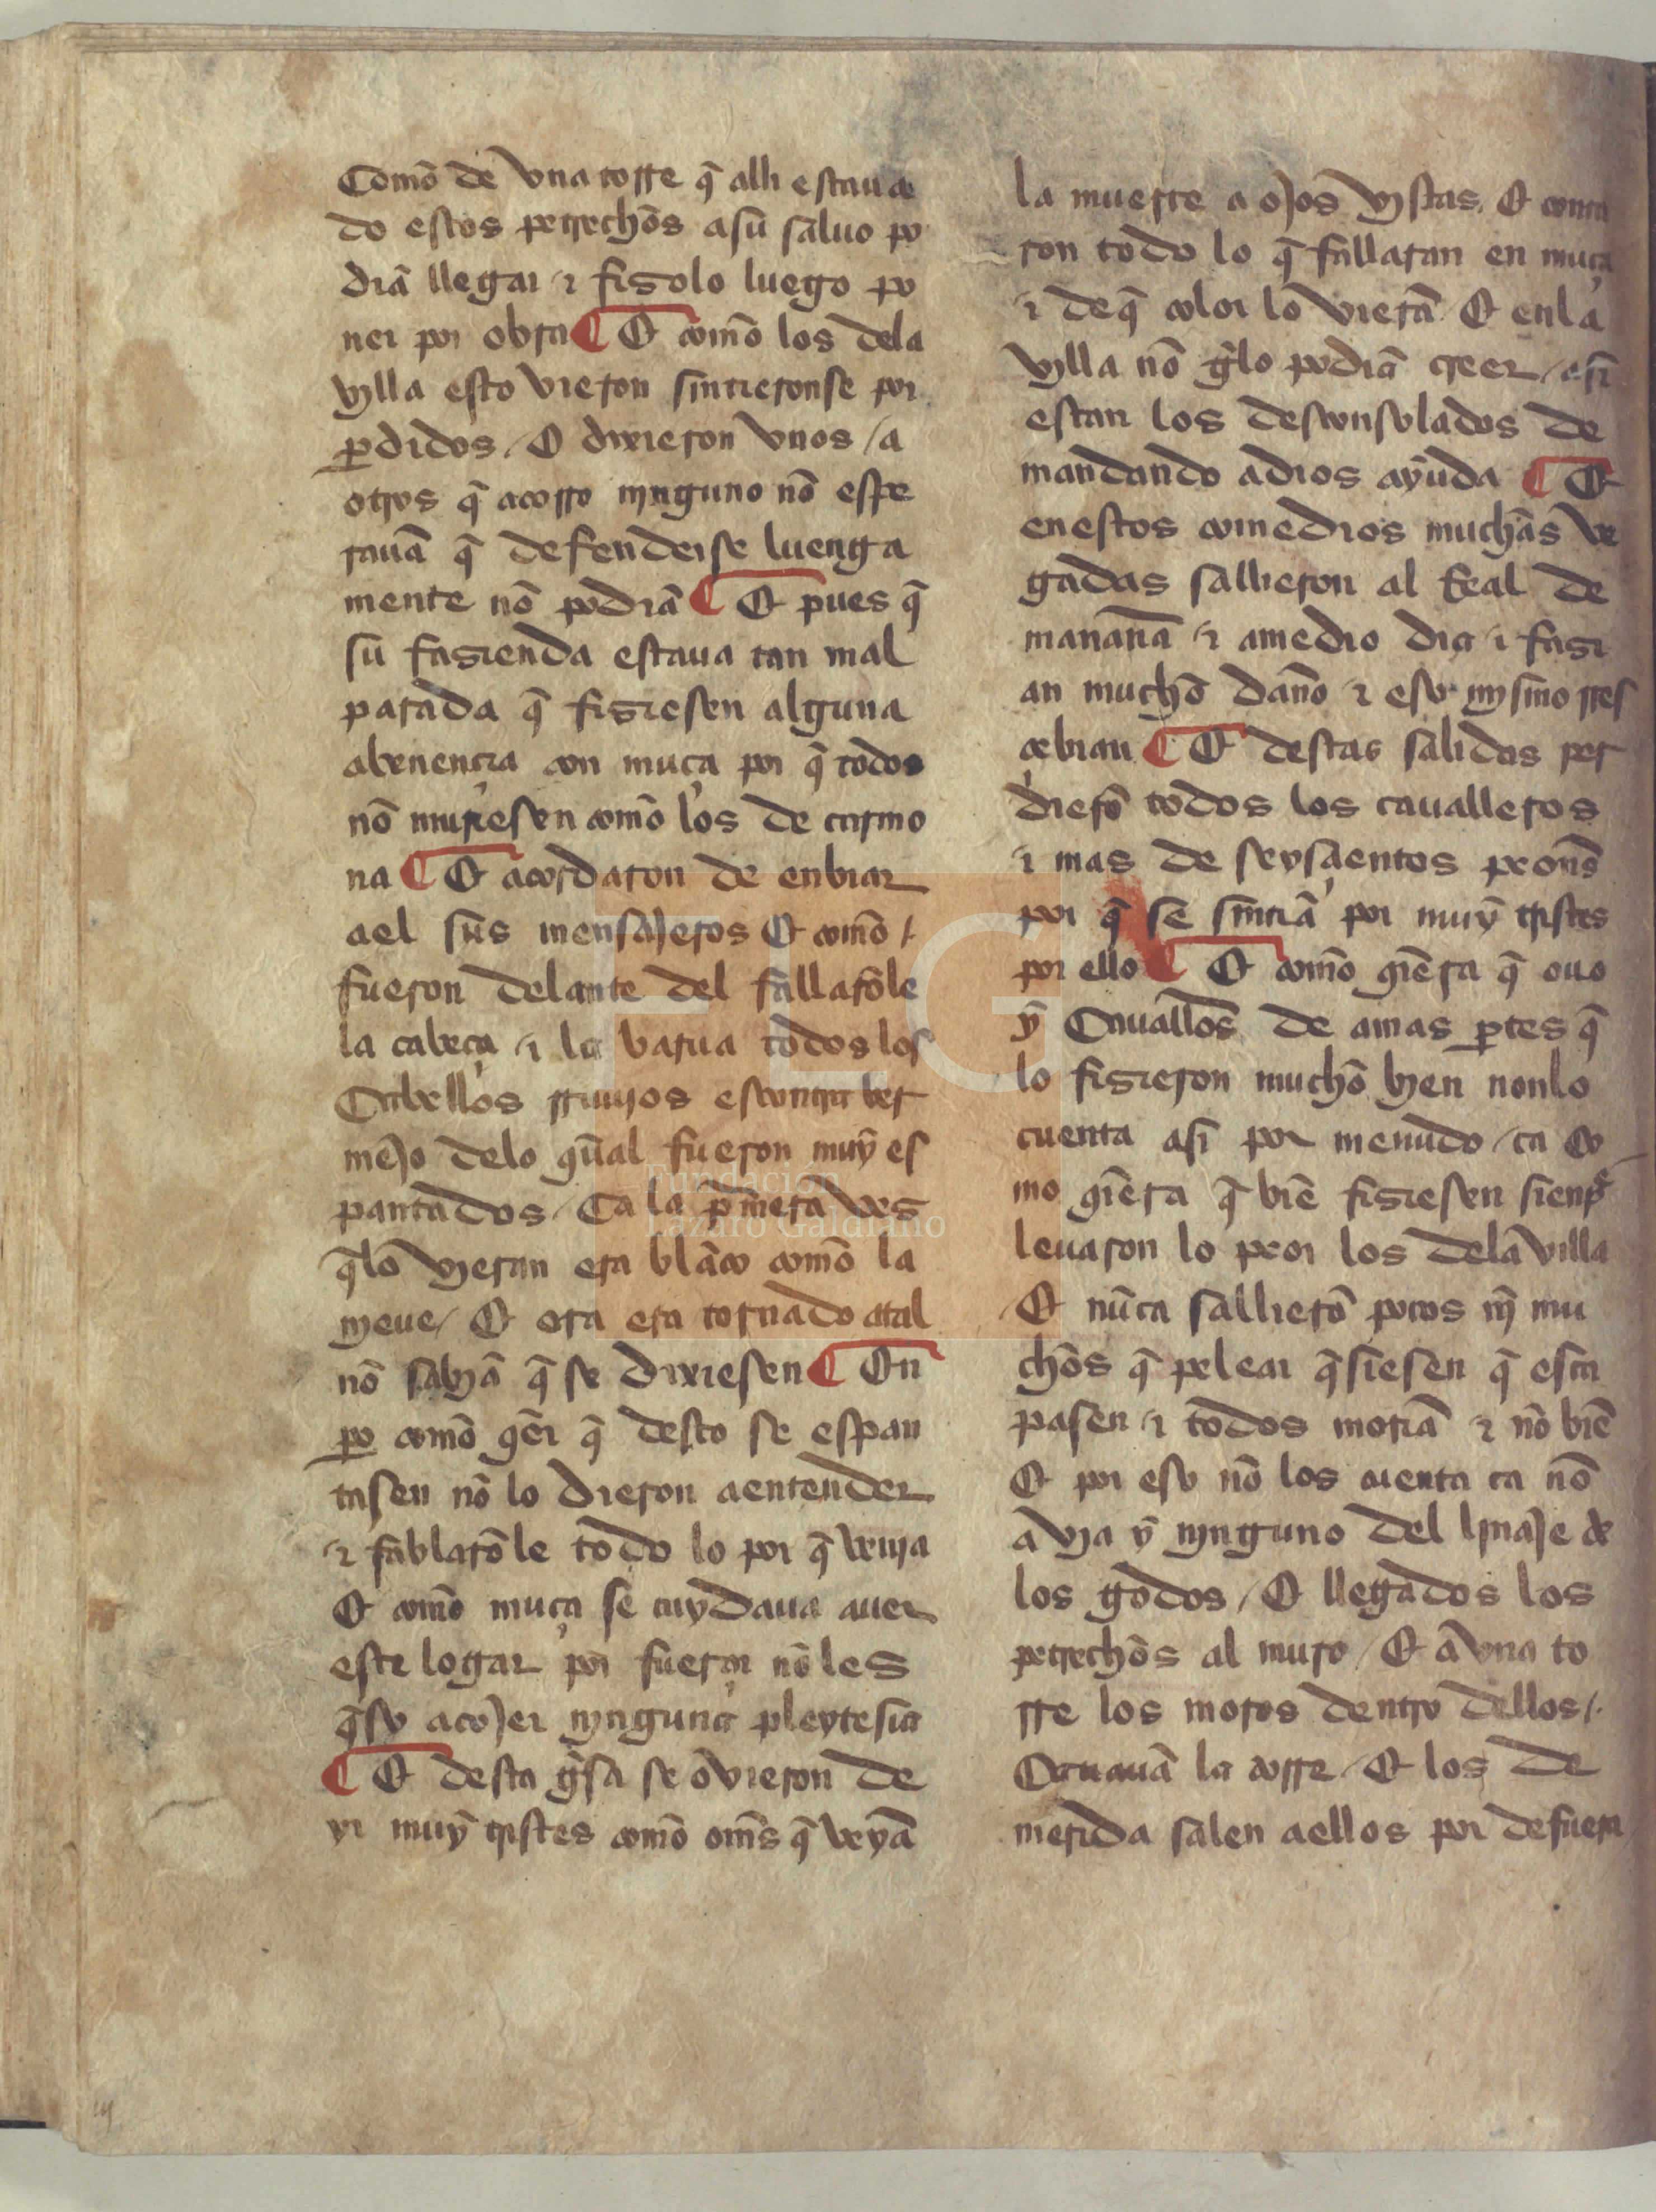 Comō de vna torre q̄ alli estaua
do estos petrechōs asu saluo po
diā llegar ⁊ fisolo luego po
ner por obra ¶ Et comō los dela
villa esto vieron sintieronse por
ꝑdidos / E dixieron vnos / a
otros q̄ acorro njnguno nō espe
rauā q̄ defenderse luenga
mente nō podiā ¶ Et pues q̄
su fasienda estaua tan mal
parada q̄ fisiesen alguna
abenençia con muça por q̄ todos
nō muriesen comō los de carmo
na ¶ Et acordaron de enbiar
ael sus mensajeros Et comō /.
fueron delante del fallarōle
la cabeça ⁊ la barua todos los
Cabellos escontra ber
mējo delo qual fueron muy es
pantados / Ca la pimera ves
q̄lo vieran era blāco comō la
njeue / Et ora era tornado atal
nō sabyā q̄ se dixiesen ¶ En
ꝑo comō q̄er q̄ desto se espan
tasen nō lo dieron aentender
⁊ fablarōle todo lo por q̄ venja
Et comō muça se cuydaua auer
este logar por fuerça nōles
q̄so acojer njnguna pleytesia
¶ Et desta gisa se ovieron de
yr muy tristes comō omēs q̄ veyā
la muerte a ojos vistas / Et conta
ron todo lo q̄ fallaran en muça
⁊ deq̄ color lo vierā Et enla
villa nō gelo podiā creer / asi
estan los desconsolados de
mandando adios ayuda ¶ Et
enestos comedios muchās ve
gadas sallieron al Real de
mananā ⁊ amedio dia ⁊ fasi
an muchō dano ⁊ eso mysmo rres
çebian ¶ Et destas salidas per
dierō todos los caualleros
⁊ mas de seysçientos peonēs
por q̄ se sintiā por muy tristes
por ello ¶ Et comō qiera q̄ ouo
y Cauallōs de amas ꝑtes q̄
lo fisieron muchō bien nonlo
cuenta asi por menudo / ca co
mo qiera q̄ biē fisiesen sienpre
leuaron lo peor los dela villa
Et nūca sallierō pocos nj mu
chōs q̄ pelear q̄siesen q̄ esca
pasen ⁊ todos moriā ⁊ nō biē
Et por eso nō los cuenta ca nō
avia y njnguno del linaje de
los godos / Et llegados los
petrechōs al muro / Et a vna to
rre los moros dentro dellos /.
Cauauā la torre / Et los de
merida salen aellos por defuera